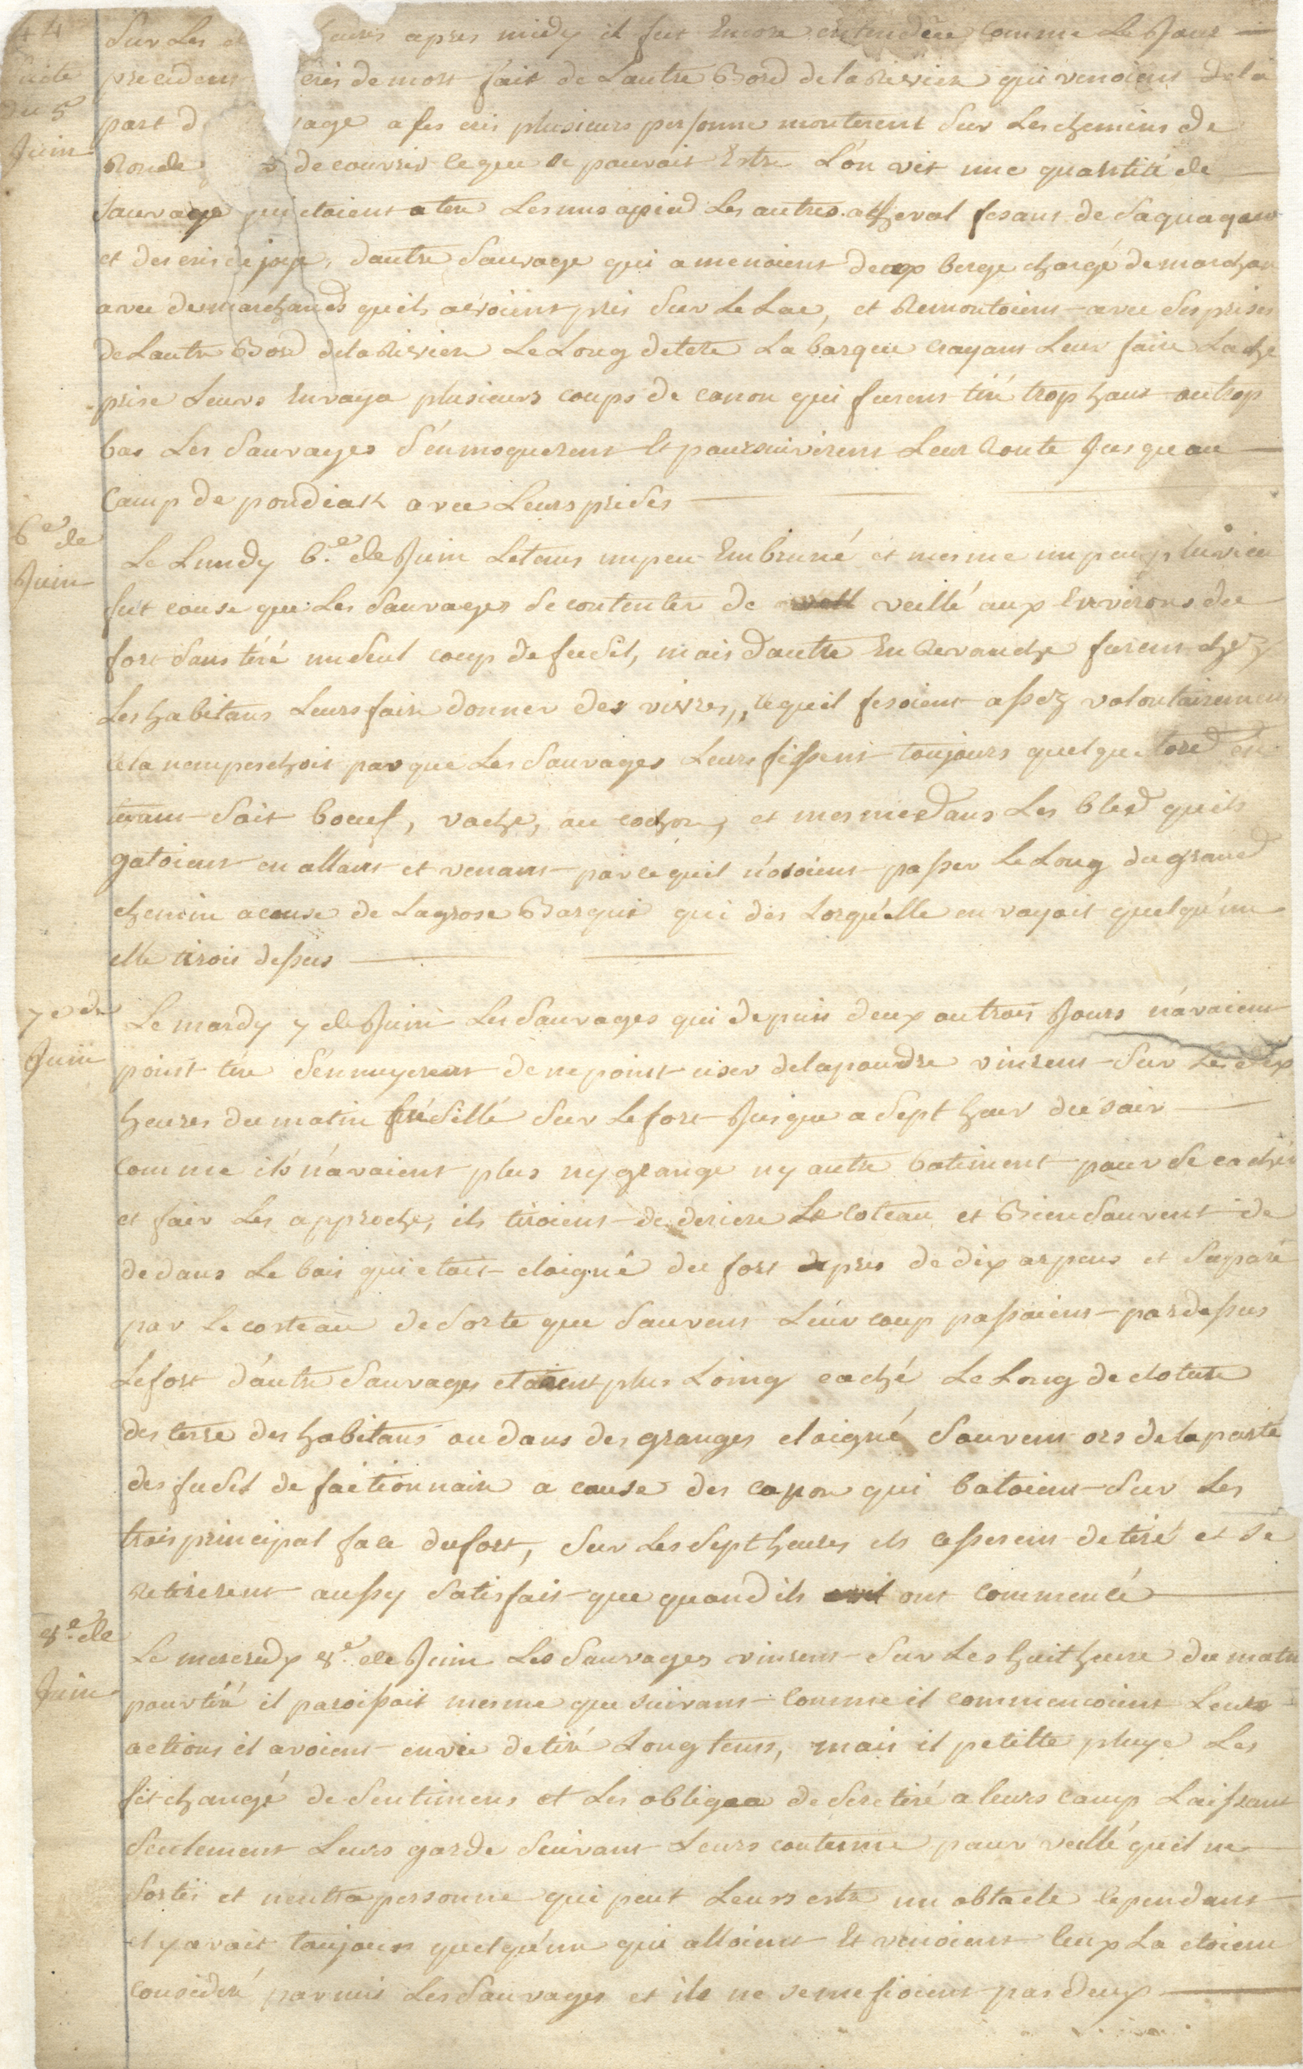 44
Suitte
du 5e
Juin
Sur Les heures apres midy il fut Encore entendeu comme Le Jour
precedent cris de mort fait de Lautre Bord de la Rivier qui venoient de la
part d vage a ses cris plusieurs personne monterent Sur Les chemins de
Ronde decouvrir ce que se pouvoit Estre L'on vit une quantité de
Sauvage qui etoient a tere Les uns apied Les autres acheval fesant de Saquaquois
et des cris de joye, dautre Sauvage qui amenoient deux berge chargé de marchan
avec de marchands quils avoient pris Sur Le Lac, et Remontoient avec Ses prises
de Lautre Bord dela Rivier Le Long de tere La barque crayant Leur faire Lache
prise Leurs Envoya plusieurs coups de canon qui furent tiré trop haut ou trop
bas Les Sauvages S'en moquerent Et poursuivirent Leur Route Jusque au
Camp de pondiak avec Leurs prises
6e de
Juin
Le Lundy 6.e de Juin Letems un peu Embrumé et mesme un peu pluvieu
fut cause que Les Sauvages Se contenter de veillé aux Environs du
fort Sans tiré un Seul coup de fusil, mais dautre En Revanche furent chez
Les habitans Leurs faire donner des vivres, ce queil fesoient assez volontairement
cela nempeschoit pas que Les Sauvages Leurs fissent toujours quelque tord en
tuant Soit boeuf, vache, ou cochon, et mesme dans Les bled quils
gatoient en allant et venant parcequil nosoient passer Le Long du grand
chemin acause de Lagrose Barque qui des Lorquelle en voyoit quelqu'un
elle tirois dessus
7e de
Juin
Le mardy 7 de Juin Les Sauvages qui depuis deux ou trois Jours n'avoient
point tiré S'ennuyerent de ne point user de la poudre vinrent Sur Les dix
heures du matin fusillé Sur Le fort Jusque a Sept heur du soir
comme ils n'avoient plus ny grange ny autre batiment pour se caché
et faire Les approche, ils tiroient de deriere Le coteau et Bien Souvent de
dedans Le bois qui etoit eloigné du fort de pres de dix arpens et Separé
par Le costeau de Sorte que Souvent Leur coup passoient par dessus
Le fort d'autre Sauvages etoient plus Loing caché Le Long de cloture
des terre des habitans ou dans des granges eloigné Souvent ors de la porté
des fusil de factionnaire a cause des capon qui batoient Sur Les
trois principal face du fort, Sur Les Sept heures ils cesserent de tiré et se
retirerent aussy Satisfait que quand ils ont commencé
8e de
Juin
Le mercredy 8.e de Juin Les Sauvages vinrent Sur Les huit heure du matin
pour tiré il paroissoit mesme que suivant comme il commencoient Leurs
actions il avoient envie de tiré Long tems, mais il petitte pluye Les
fit changé de Sentimens et Les obligea de Se retiré a leurs camp Laissant
Seulement Leurs garde Suivant Leurs coutume pour veillé quil ne
Sortit et neutra personne qui peut Leurs estre un obtacle cependant
il y avoit toujours quelqu'un qui alloient Et venoient ceux La etoient
consideré parmis Les Sauvages et ils ne se mefioient pas deux